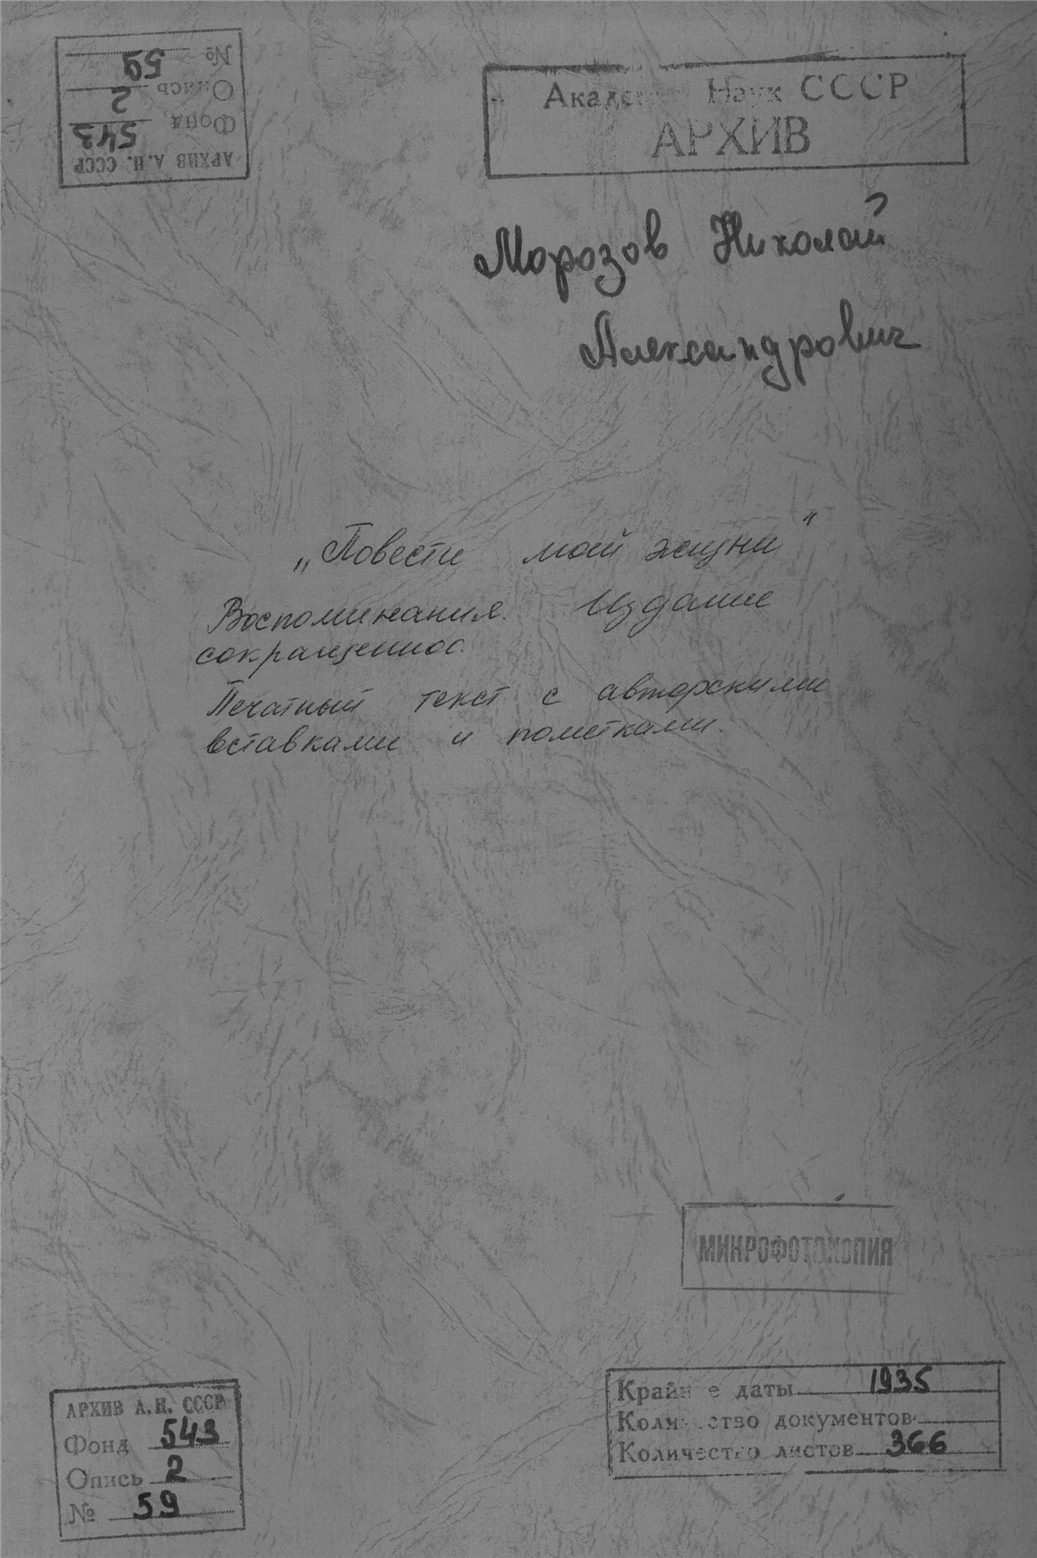 АРХИВ А.Н. СССР
Фонд 543
Опись 2
№ 59
Академия Наук СССР
АРХИВ
Морозов Николай
Александрович
„Повести моей жизни"
Воспоминания. Издание
сокращенное.
Печатный текст с авторскими
вставками и пометками.
МИКРОФОТОКОПИЯ
АРХИВ А.Н. СССР
Фонд 543
Опись 2
№ 59
Крайние даты 1935
Количество документов
Количество листов 366